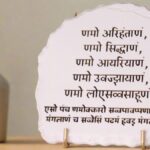 णमो अरिहंताणं,
णमो सिद्धाणं,
णमो आयरियाणं,
णमो उवज्झायाणं,
णमो लोएसव्वसाहूणं
एसो पंच णमोक्कारो सव्वपावप्पणा
मंगलाणं च सव्वेसिं पढमं हवइ मंग